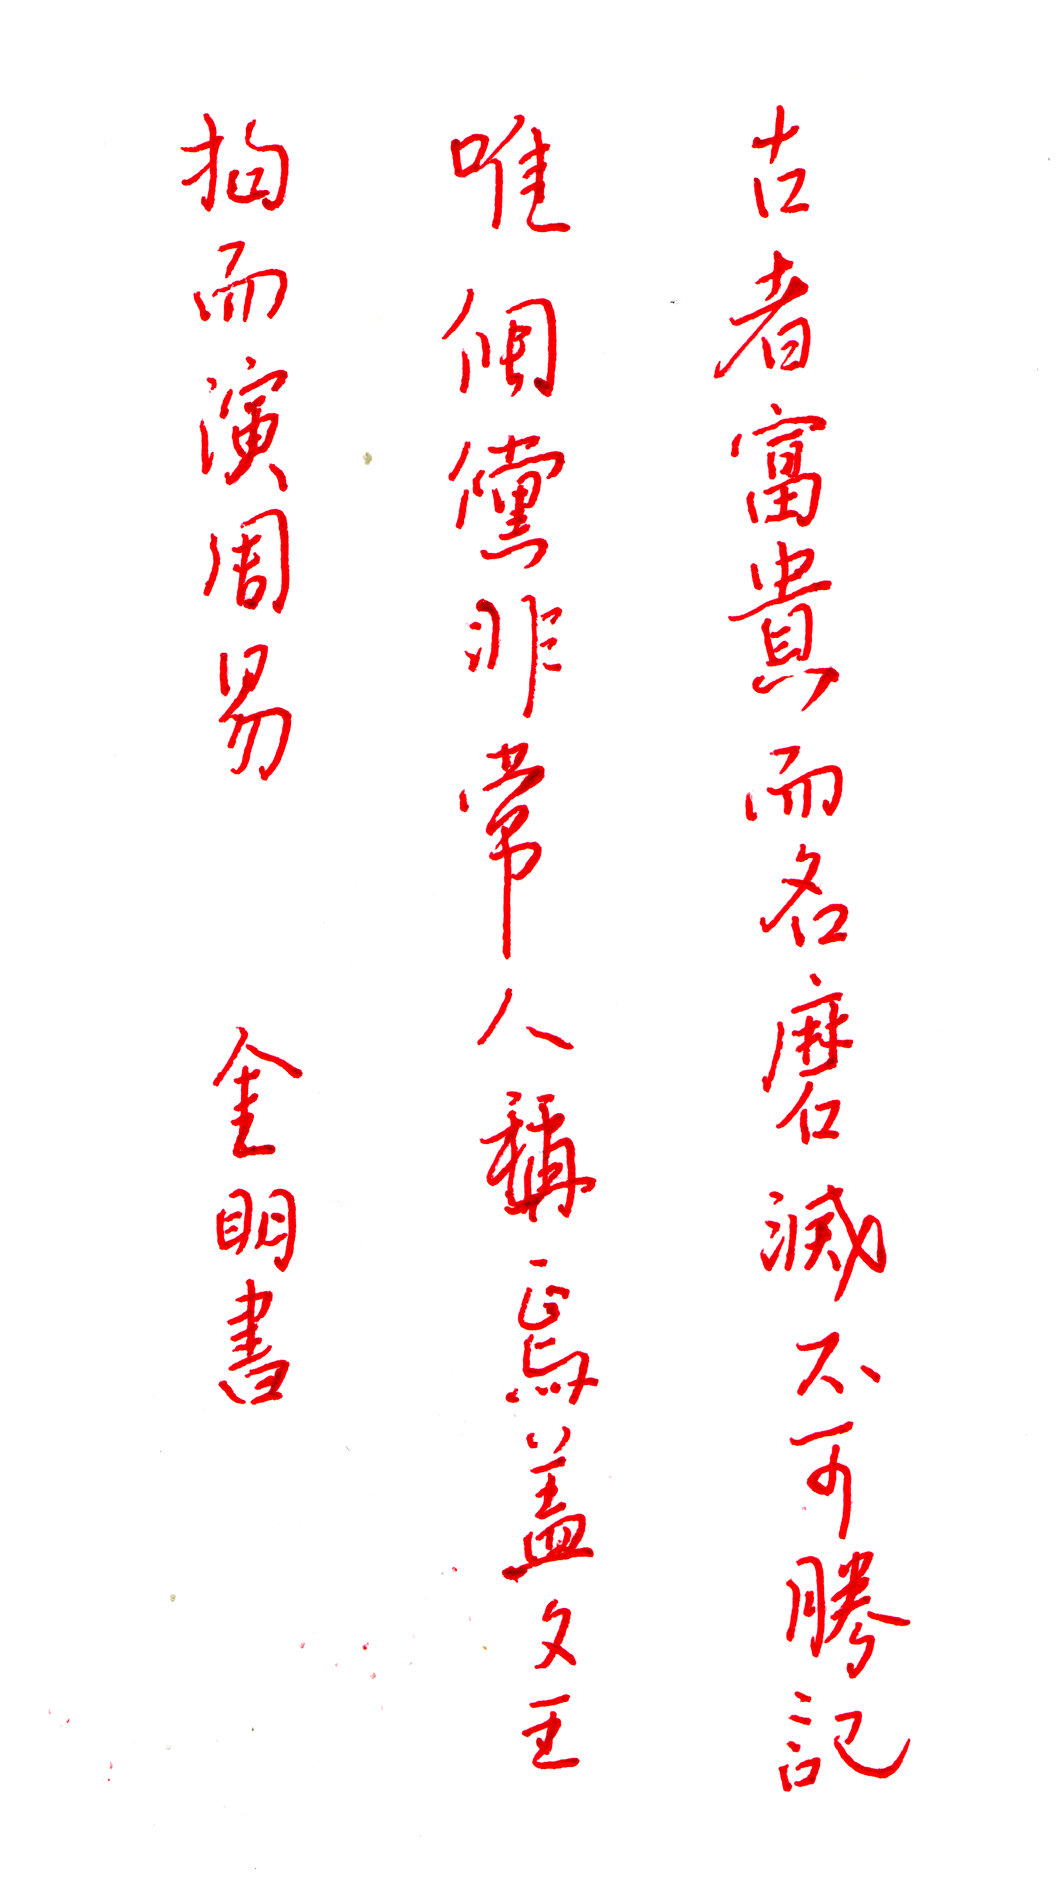 古者富貴而名磨滅不可勝記
唯倜儻非常人稱焉盖文王
拘而演周易 金明書